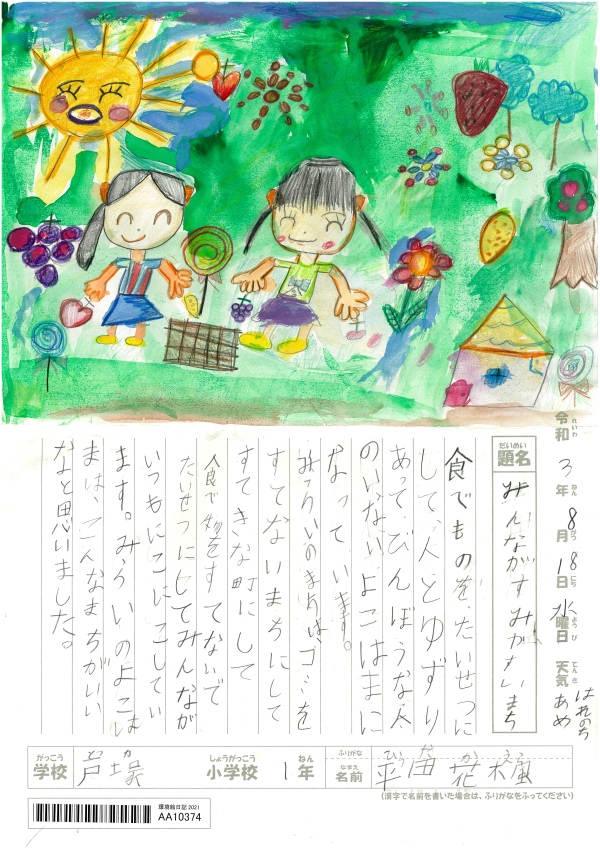 令和3年8月18日水曜日 天気 はれのち あめ
れいわ ねん がつ にち ようび てんき
だいめい
題名 みんながすみやすいまち
食でものを、たいせつに
して、人とゆずり
あって、びんぼうな人
のいない、よこはまに
なっています。
みらいのまちは、ゴミを
すてないまちにして
すてきな町にして
食で物をすてないで
たいせつにしてみんなが
いつもにこにこしてい
ます。みらいのよこは
まは、こんなまちがいい
なと思いました。
がっこう
学校
とつか
戸塚
しょうがっこう
小学校
ねん
1年
ふりがな
なまえ
名前
ひらた かえ
平田 花楓
(漢字で名前を書いた場合は、ふりがなをふってください)
環境絵日記 2021
AA10374